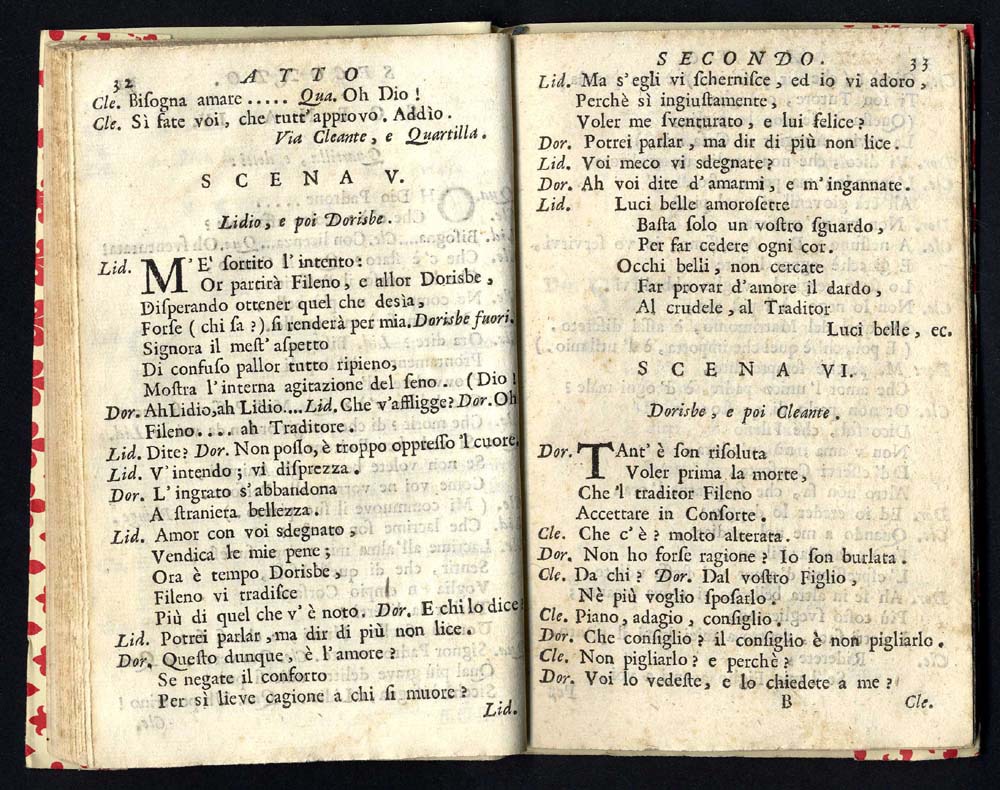 32 ATTO
Cle. Bisogna amare ..... Qua. Oh Dio !
Cle. Sì fate voi, che tutt'approvo. Addìo.
Via Cleante, e Quartilla.
SCENA V.
Lidio, e poi Dorisbe.
Lid. M'E' sortito l'intento:
Or partirà Fileno, e allor Dorisbe,
Disperando ottener quel che desìa,
Forse ( chi sa ? ) si renderà per mia. Dorisbe fuori.
Signora il mest' aspetto
Di confuso pallor tutto ripieno,
Mostra l'interna agitazione del seno .. ( Dio !
Dor. Ah Lidio, ah Lidio.... Lid. Che v'affligge? Dor. Oh
Fileno.... ah Traditore.
Lid. Dite? Dor. Non posso, è troppo oppresso 'l cuore.
Lid. V'intendo; vi disprezza.
Dor. L' ingrato s'abbandona
A straniera bellezza.
Lid. Amor con voi sdegnato,
Vendica le mie pene;
Ora è tempo Dorisbe,
Fileno vi tradisce
Più di quel che v' è noto. Dor. E chi lo dice?
Lid. Potrei parlar, ma dir di più non lice.
Dor. Questo dunque, è l'amore?
Se negate il conforto
Per sì lieve cagione a chi si muore?
Lid.
SECONDO. 33
Lid. Ma s'egli vi schernisce, ed io vi adoro,
Perchè sì ingiustamente,
Voler me sventurato, e lui felice?
Dor. Potrei parlar, ma dir di più non lice.
Lid. Voi meco vi sdegnate?
Dor. Ah voi dite d'amarmi, e m'ingannate.
Lid. Luci belle amorosette
Basta solo un vostro sguardo,
Per far cedere ogni cor.
Occhi belli, non cercate
Far provar d'amore il dardo,
Al crudele, al Traditor
Luci belle, ec.
SCENA VI.
Dorisbe, e poi Cleante.
Dor. TAnt' è son risoluta
Voler prima la morte,
Che 'l traditor Fileno
Accettare in Consorte.
Cle. Che c'è? molto alterata.
Dor. Non ho forse ragione? Io son burlata.
Cle. Da chi? Dor. Dal vostro Figlio,
Nè più voglio sposarlo.
Cle. Piano, adagio, consiglio.
Dor. Che consiglio? il consiglio è non pigliarlo.
Cle. Non pigliarlo? e perchè?
Dor. Voi lo vedeste, e lo chiedete a me?
B Cle.